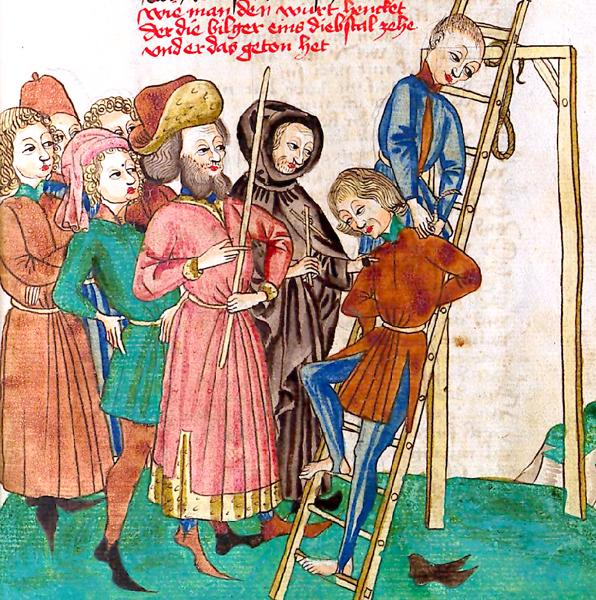 wie man den wurt hencket
Der die bilger eins diebstal zehe
vnd er das geton het